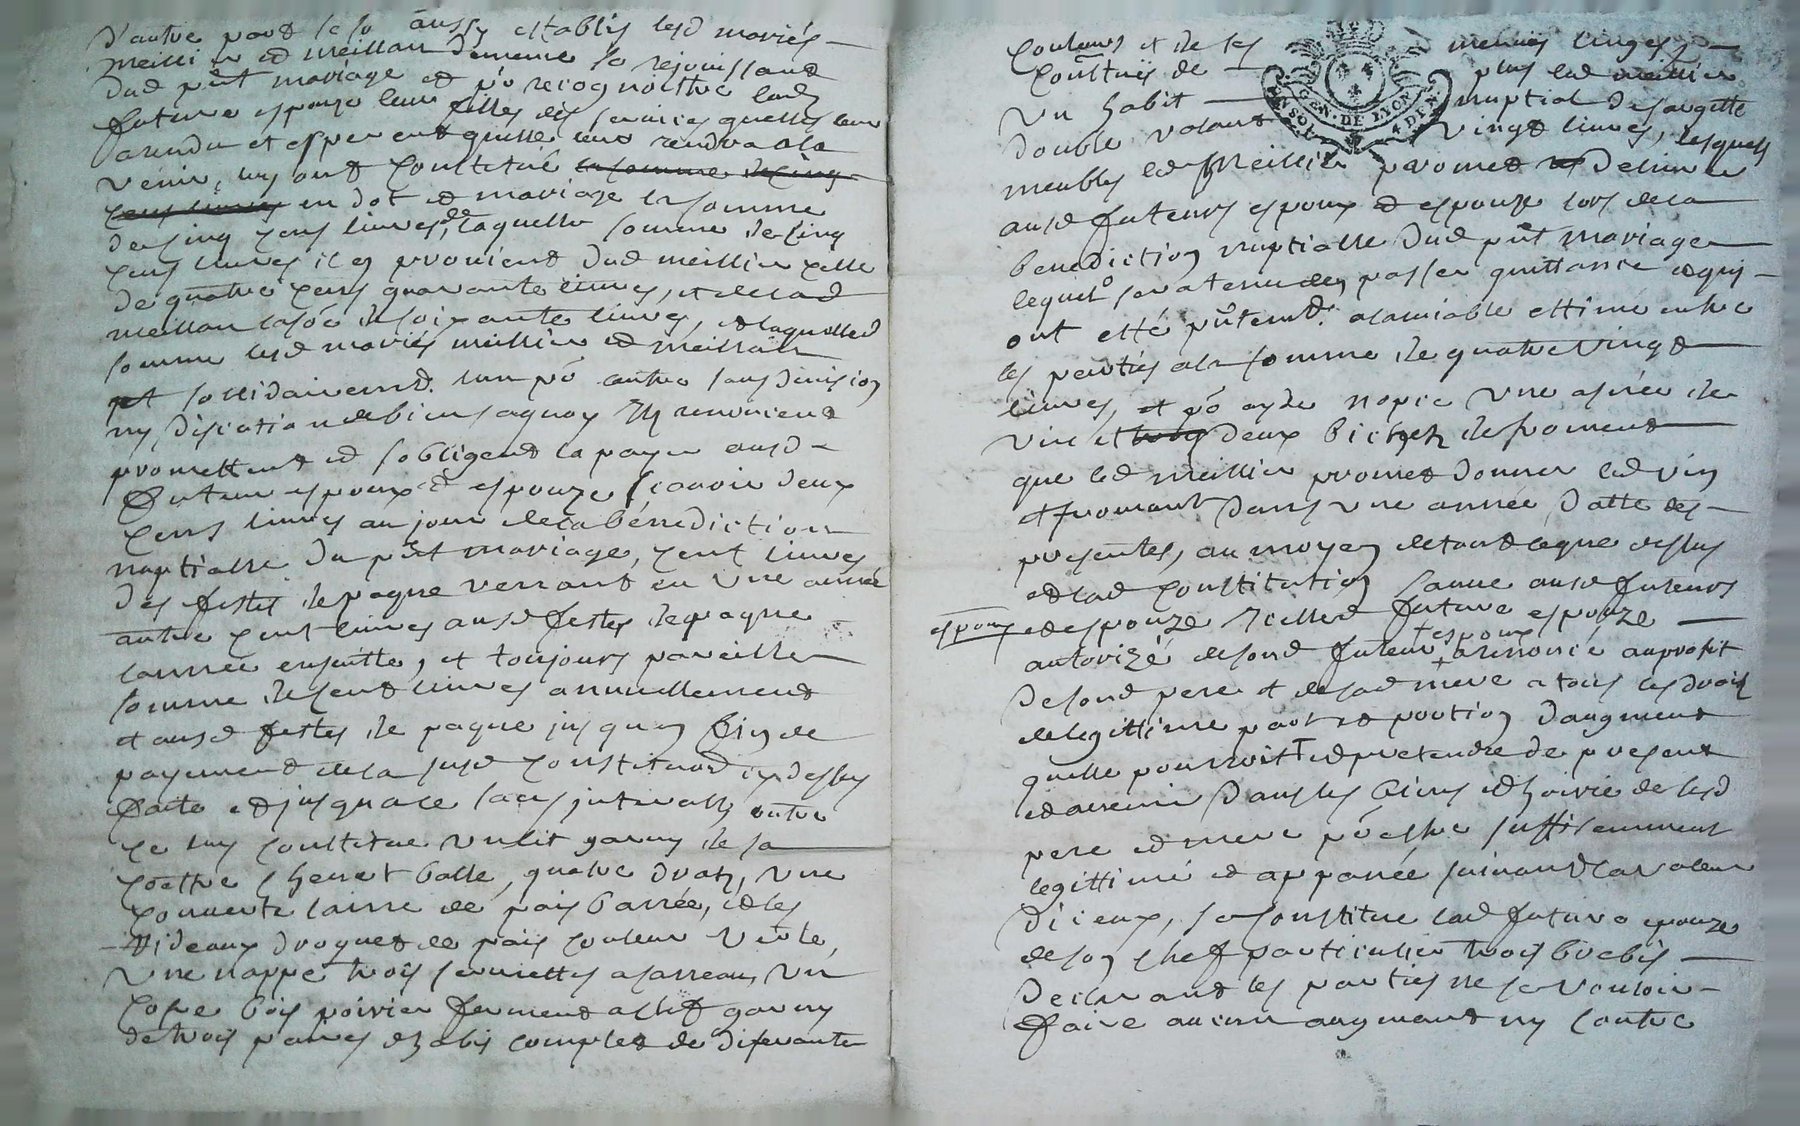 d'autre part se so aussy establis lesd mariés
meillier et meillan dememe se rejouissant
dud pñt mariage et pó recognoistre lad
future espouze leur fille des services quelles leur
a rendu et esperent quelle leur rendra ala
venir, luy ont constitué la somme de cinq
cens livres en dot et mariage la somme
de cinq cens livres, de laquelle somme de cinq
cens livres il en provient dud meillier celle
de quatre cens quarante livres, et de lad
meillan celle de soixante livres, et laquelled
somme lesd mariés meillier et meillan
sollidairemt. lun pó autre sans division
ny discution de biens aquoy ils renoncent
promettent et sobligent la payer ausd
futeur espoux et espouze scavoir deux
cens livres au jour de la bénédiction
nuptialle du pñt mariage, cent livres
des festes de paque venant en une année
autre cent livres ausd festes de paque
lannée ensuitte, et toujours pareille
somme de cent livres annuellement
et ausd festes de paque jusqua fin de
payement de la susd constituón cy dessus
faite et jusqua ce sans interests outre
ce luy constitue un lit garny de sa
coëttre chevet balle, quatre draps, une
couverte laine de païs barrée, et les
rideaux droguet de païs couleur verte,
une nappe trois serviettes alasseau, un
cofre bois poirier fermant a clef garny
de trois paires dhabis complet de diferante
couleurs et de ses menues linges
constitué de plus led meillier
un habit nuptial de sargette
double valant vingt livres, lesquels
meubles led Meillier promet delivrer
ausd futeurs espoux et espouze lors de la
benediction nuptialle dud pñt mariage
lequel sera tenu den passer quittance et qui
ont esté pñtemt. alamiable estimé entre
les parties ala somme de quatre vingt
livres, et pó ayde nopce une asnée de
vin et deux bichets de froment
que led meillier promet donner led vin
et fromant dans une année datte des
presentes, au moyen de tout ce que dessus
et lad constitution faitte ausd futeurs
espoux et espouze icelled future espouze
autorizé de sond futeur espoux a renoncé au profit
de sond pere et de sad mere a tous les droits
de legittime part et portion daugment
quelle pourroit et pretendre de present
et avenir dans les biens et hoirie de lesd
pere et mere pó estre suffisemment
legittimé et appanée suivant la valeur
diceux, se constitue lad future epouze
de son chef particulier trois brebis
declarant les parties ne se vouloir
faire aucun augment ny contre
GEN. DE LYON
UN SOL 4 DEN.